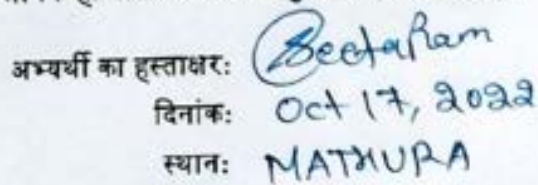 अभ्यर्थी का हस्ताक्षर: SeetaRam
दिनांक: Oct 17, 2022
स्थान: MATHURA